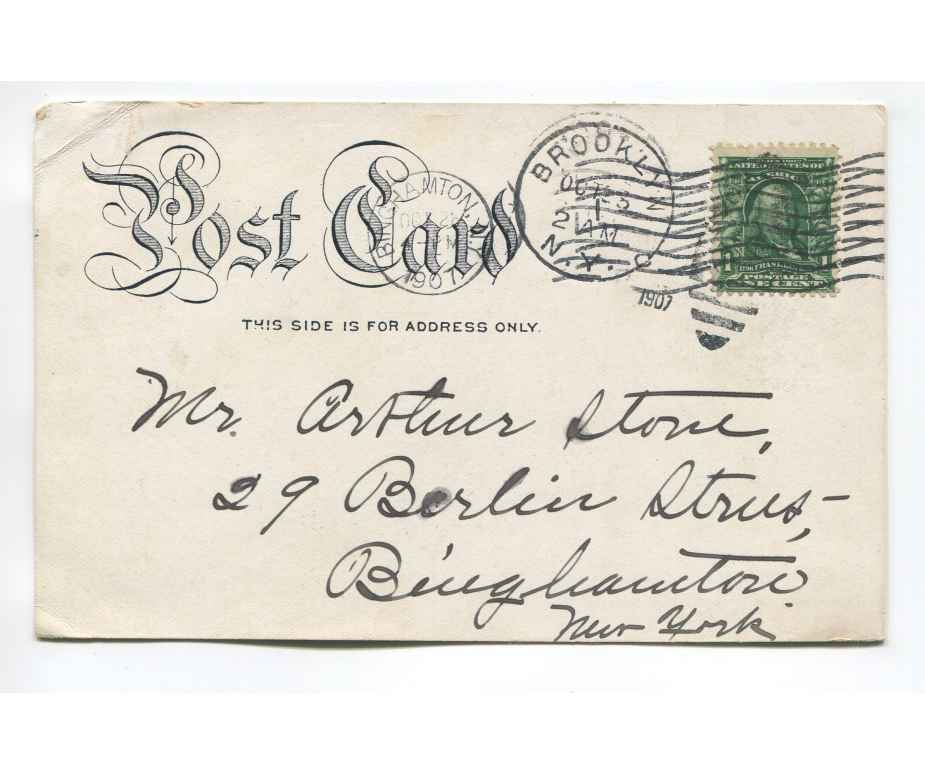 Post Card
THIS SIDE IS FOR ADDRESS ONLY.
BINGHAMTON, N.Y.
OCT
1907
BROOKLYN
OCT 23
1 AM
N.Y.
1907
UNITED STATES OF
AMERICA
POSTAGE
ONE CENT
Mr. Arthur Stone,
29 Berlin Street,
Binghamton
New York